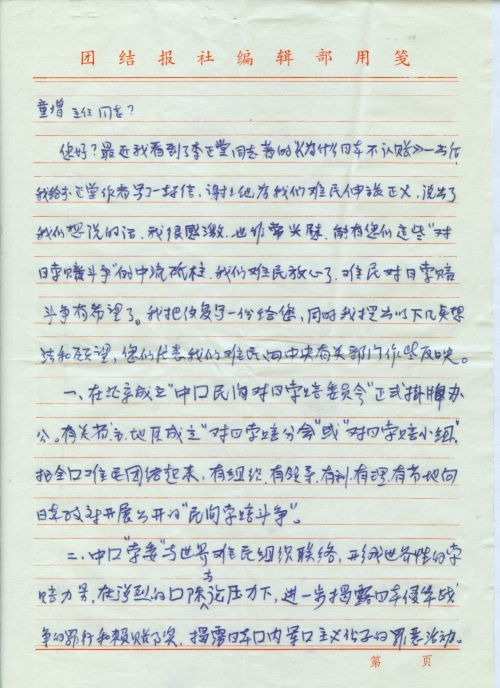 团结报社编辑部用笺
童增主任同志?
您好?最近我看到了李正堂同志著的《为什么日本不认账》一书后,
我给李正堂作者写了一封信,谢谢他为我们难民伸张正义,说出了
我们想说的话,我很感激,也非常兴奋,能有您们这些"对
日索赔斗争"的中流砥柱,我们难民放心了,难民对日索赔
斗争有希望了。我把信复写一份给您,同时我提出以下几点想
法和愿望,您们代表我们难民向中央有关部门作些反映。
一、在北京成立"中口民间对日索赔委员会"正式挂牌办
公。有关省、市、地区成立"对日索赔分会"或"对日索赔小组",
把全口难民团结起来,有组织、有领导、有利、有理、有节地向
日本政府开展公开的"民间索赔斗争"。
二、中口"索委"与世界难民组织联络,形成世界性的索
赔力量,在强烈的口际舆论压力下,进一步揭露日本侵华战
争的罪行和赖账事实,揭露日本口内军口主义分子的罪恶活动。
第 页